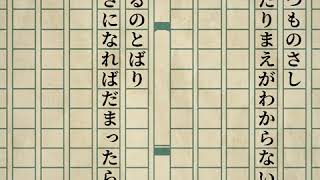 つものさし
たりまえがわからない
るのとばり
さになればだまったら